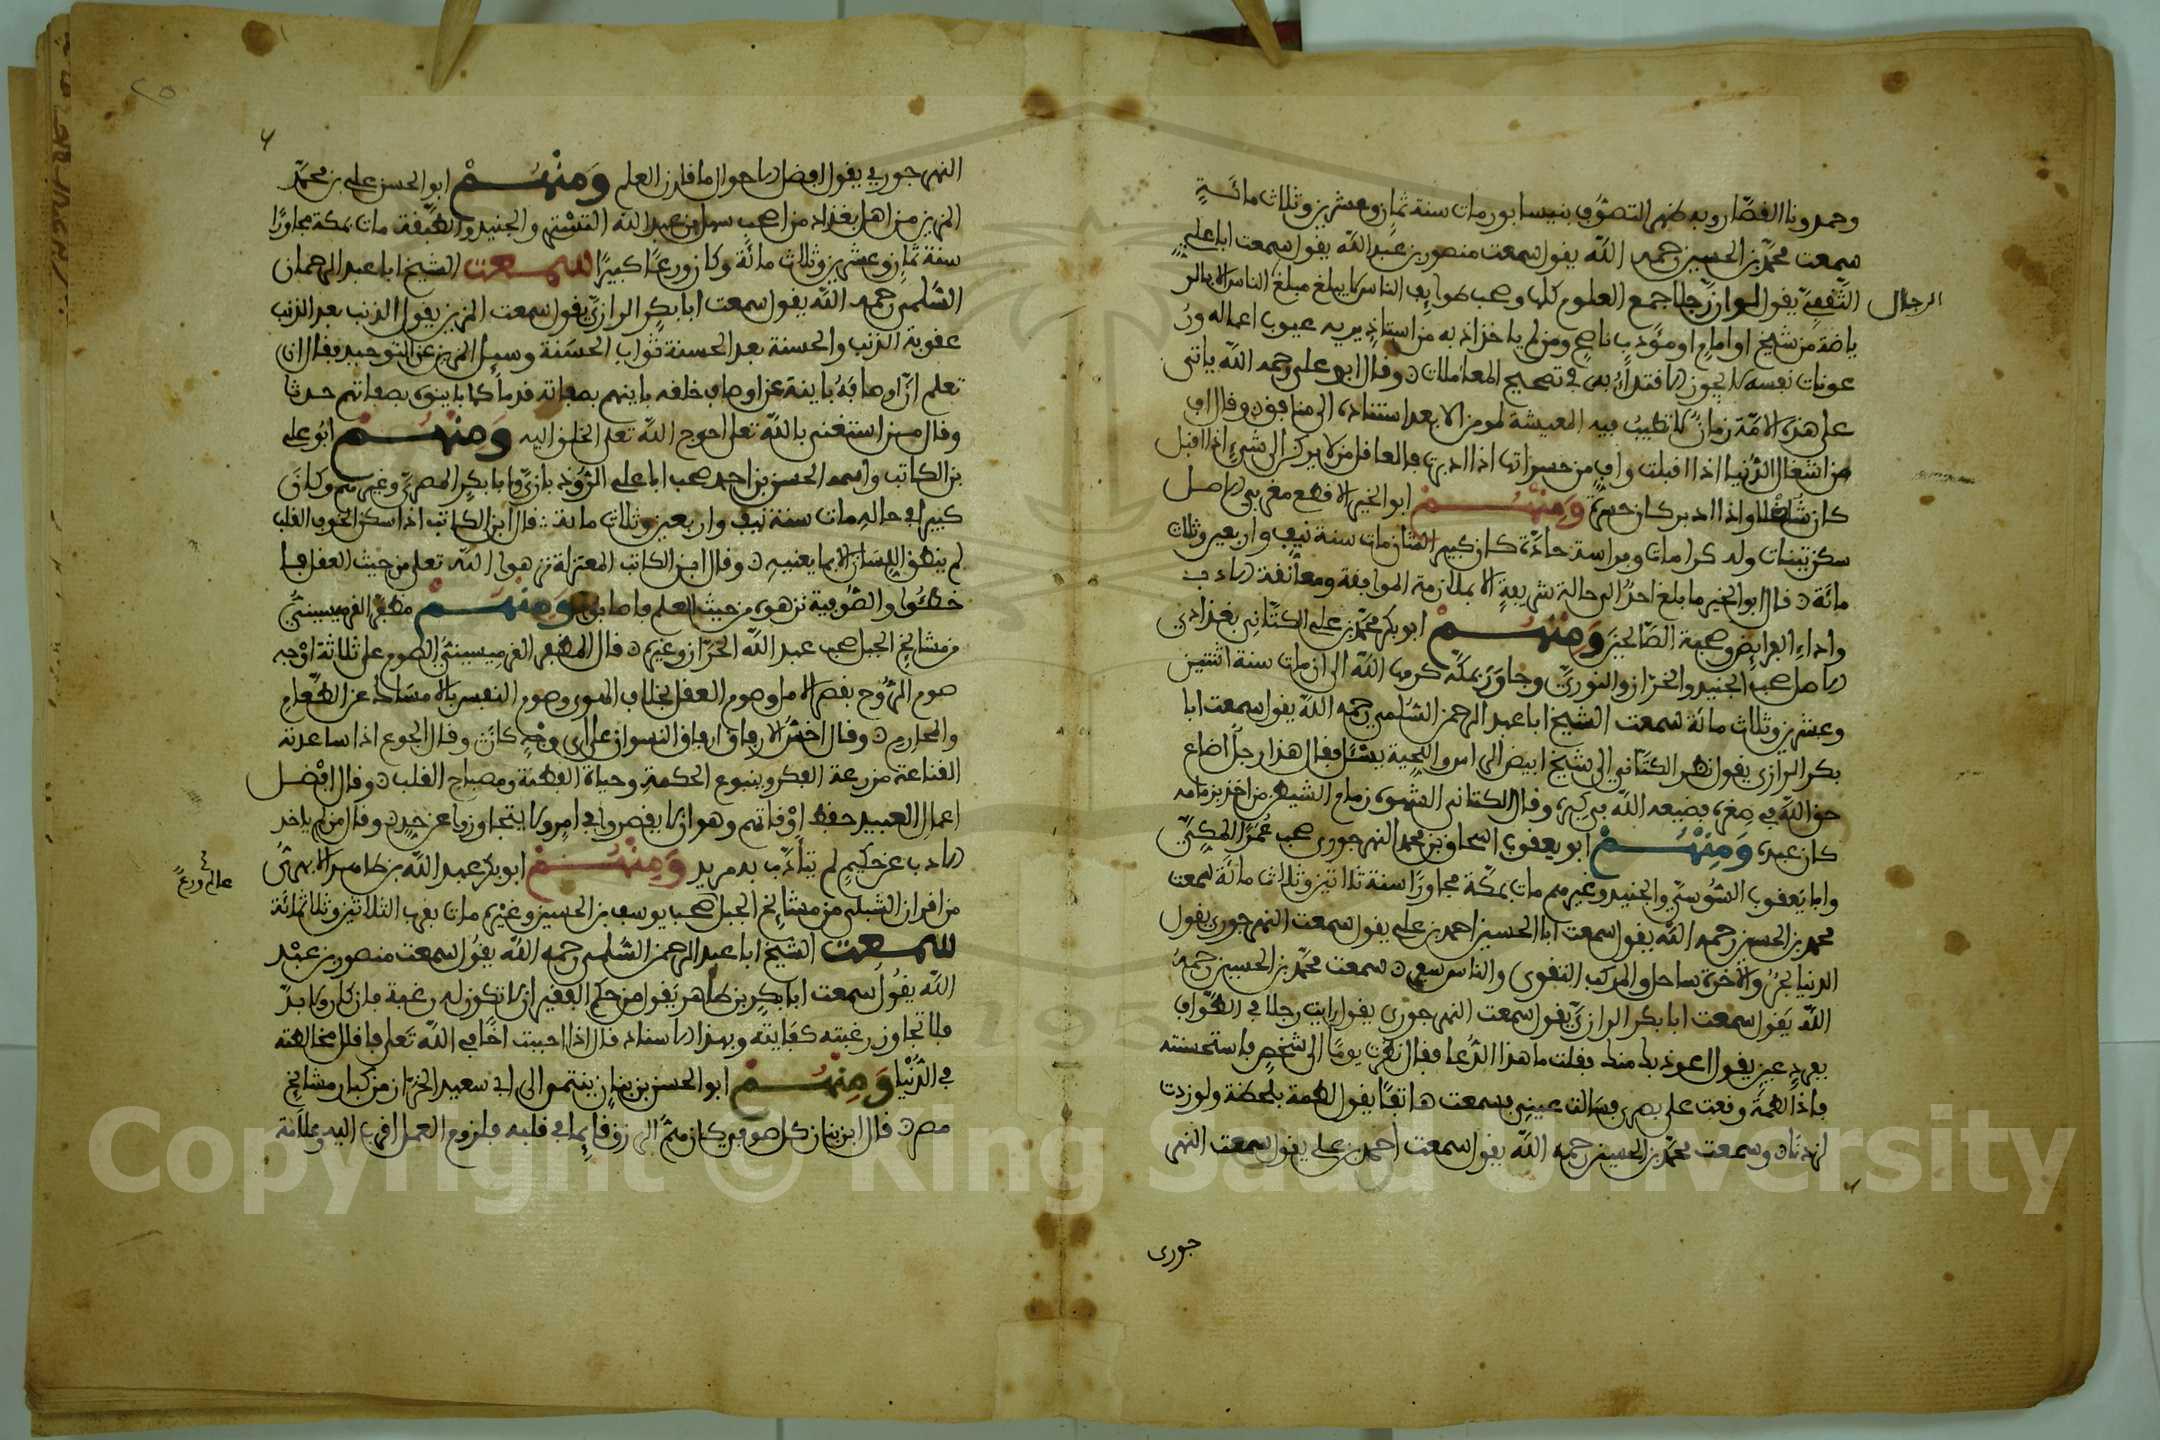 وحمدونا القصّار وبه ظهر التصوّف بنيسابور مات سنة ثمان وعشرين وثلاث مائة
سمعت محمّد بن الحسين رحمه الله يقول سمعت منصور بن عبد الله يقول سمعت ابا علي
الثقفيّ يقول لو ان رجلا جمع العلوم كلها وصحب طوايف الناس لا يبلغ مبلغ الناس الا بالر
الرجال
ياضة من شيخ او امام او مؤدب ناصح ومن لم ياخذ ادبه من استاذ يريه عيوب اعماله ور
عونات نفسه لا يجوز الاقتداء به في تصحيح المعاملات وقال ابو علي رحمه الله ياتي
على هذه الامّة زمان لا تطيب فيه المعيشة لمومن الا بعد استناده الى منافق وقال اف
من اشغال الدنيا اذا اقبلت واف من حسراتها اذا ادبرت والعاقل من لا يركن الى شيء اذا اقبل
كان شغلا واذا ادبر كان حسرة وَمِنْهُمْ ابو الخير الاقطع مغربي الاصل
سكن تينات وله كرامات وفراسة حادّة كان كبير الشان مات سنة نيف واربعين وثلاث
مائة قال ابو الخير ما بلغ احدٌ الى حالة شريفة الا بملازمة الموافقة ومعانقة الادب
واداء الفرايض وصحبة الصّالحين وَمِنْهُمْ ابو بكر محمّد بن علي الكتّاني بغدادي
الاصل صحب الجنيد والخرّاز والنوريّ وجاور بمكّة كرمها الله الى ان مات سنة اثنتين
وعشرين وثلاث مائة سمعت الشيخ ابا عبد الرحمن السّلمي رحمه الله يقول سمعت ابا
بكر الرازي يقول نظر الكتّاني الى شيخ ابيض الراس واللحية يسئل فقال هذا رجلٌ اضاع
حق الله في صغره فضيعه الله في كبره وقال الكتاني الشهوة زمام الشيطن من اخذ بزمامه
كان عبده وَمِنْهُمْ ابو يعقوب اسحاق بن محمد النهرجوري صحب عُمَرًا المكيّ
وابا يعقوب السّوسيّ والجنيد وغيرهم مات بمكّة مجاورًا سنة ثلاثين وثلاث مائة سمعت
محمد بن الحسين رحمه الله يقول سمعت ابا الحسين احمد بن علي يقول سمعت النهرجوري يقول
الدنيا بحرٌ والاخرة ساحل والمركب التقوى والناس سفر سمعت محمّد بن الحسين رحمه
الله يقول سمعت ابا بكر الرازيّ يقول سمعت النهرجوري يقول رايت رجلا في الطّواف
بفرد عين يقول اعوذ بك منك فقلت ما هذا الدّعا فقال نظرت يومًا الى شخص فاستحسنته
فاذا لطمة وقعت على بصري فسالت عيني فسمعت هاتفًا يقول لطمة بلحظة ولو زدت
لزدناك وسمعت محمّد بن الحسين رحمه الله يقول سمعت احمد بن علي يقول سمعت النهر
جورى
النهرجوري يقول افضل الاحوال ما قارن العلم وَمِنْهُمْ ابو الحسن علي بن محمّد
المزين من اهل بغداد من اصحب سهل بن عبد الله التستري والجنيد والطّبقة مات بمكة مجاورًا
سنة ثمان وعشرين وثلاث مائة وكان ورعًا كبيرًا سمعت الشيخ ابا عبد الرحمان
السّلمي رحمه الله يقول سمعت ابا بكر الرازيّ يقول سمعت المزين يقول الذنب بعد الذنب
عقوبة الذنب والحسنة بعد الحسنة ثواب الحسنة وسيل المزين عن التوحيد فقال ان
تعلم انّ اوصافه باينة عن اوصاف خلقه باينهم بصفاته قدمًا كما باينوه بصفاتهم حدثا
وقال من استغنى بالله تعلى احوج الله تعلى الخلق اليه وَمِنْهُمْ ابُو علي
بن الكاتب واسمه الحسن بن احمد صحب ابا علي الرّوذباريّ وابا بكر المصريّ وغيرهم وكان
كبيرا في حاله مات سنة نيف واربعين وثلاث مائة قال ابن الكاتب اذا سكن الخوف القلب
لم ينطق اللسان الا بما يعنيه وقال ابن الكاتب المعتزلة نزهوا الله تعلى من حيث العقل فا
خطئوا والصّوفية نزهوه من حيث العلم فاصابوا وَمِنْهُمْ مظفر القرميسينيّ
من مشايخ الجبل صحب عبد الله الخرّاز وغيره قال المظفر القرميسينيّ الصوم على ثلاثة اوجه
صوم الرّوح بقصر الامل وصوم العقل بخلاف الهوى وصوم النفس بالامساك عن الطّعام
والمحارم وقال اخسّ الارفاق ارفاق النسوان على اي وجهٍ كان وقال الجوع اذا ساعدته
القناعة مزرعة الفكر وينبوع الحكمة وحياة الفطنة ومصباح القلب وقال افضل
اعمال العبيد حفظ اوقاتهم وهو ان لا يقصروا في امر ولا يتجاوزوا عن حد وقال من لم ياخذ
الادب عن حكيم لم يتادّب به مريد وَمِنْهُمْ ابو بكر عبد الله بن طاهر الابهريّ
عالم ورع
من اقران الشبلي من مشايخ الجبل صحب يوسف بن الحسين وغيرهم مات بقرب الثلاثين وثلاثمائة
سمعت الشيخ ابا عبد الرحمن السّلمي رحمه الله يقول سمعت منصور بن عبْد
الله يقول سمعت ابا بكر بن طاهر يقول من حكم الفقير ان لا تكون له رغبة فان كان ولا بدّ
فلا تجاوز رغبته كفايته وبهذا الاسناد قال اذا احببت اخًا في الله تعلى فاقلل مخالطته
في الدّنيا وَمِنْهُمْ ابو الحسن بن بنان ينتمي الى ابي سعيد الخرّاز من كبار مشايخ
مصر قال ابن بنان كل صوفي كان همّ الرزق قايما في قلبه فلزوم العمل اقرب اليه وعلامة
Copyright © King Saud University